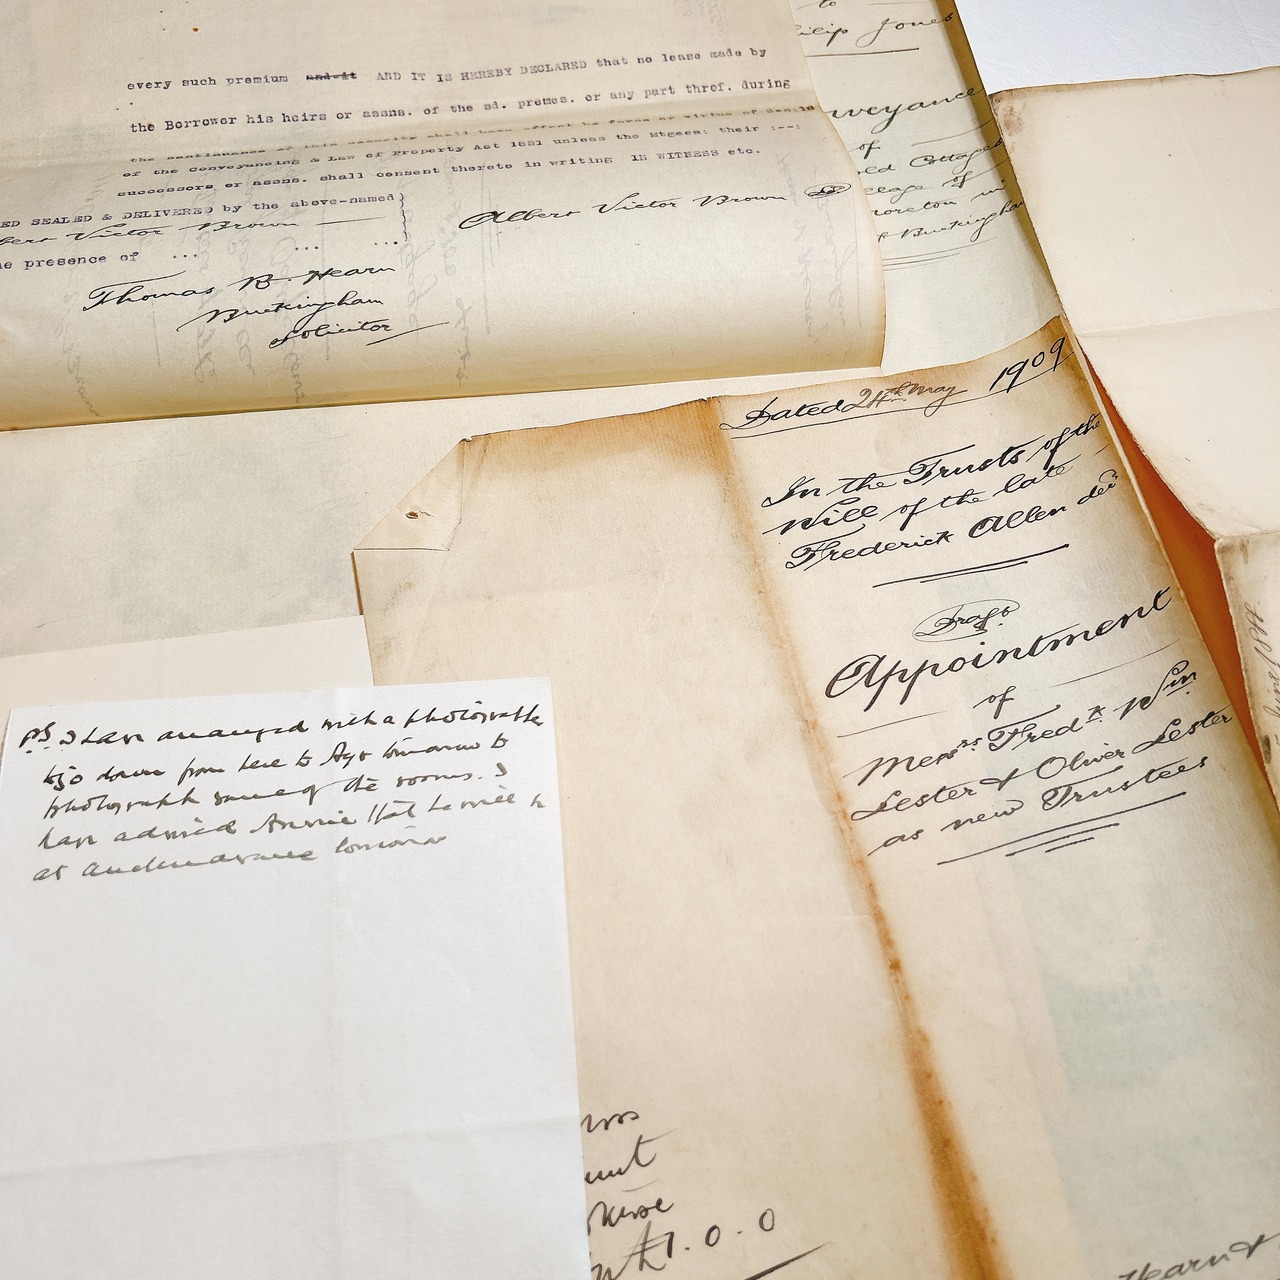 every such premium and it AND IT IS HEREBY DECLARED that no lease made by
the Borrower his heirs or assns. of the sd. premes. or any part throf. during
the continuance of this security shall have effect by force or virtue of
of the Conveyancing & Law of Property Act 1881 unless the Mtgees: their :--:
successors or assns. shall consent thereto in writing IN WITNESS etc.
ED SEALED & DELIVERED by the above-named
bert Victor Brown
he presence of ... ... ...
Albert Victor Brown
Thomas B. Hearn
Buckingham
Solicitor
to
ilip Jones
veyance
of
old Cottages
llage of
moreton in
of Buckingham
Dated 24th May 1909
In the Trusts of the
Will of the late
Frederick Allen decd
Draft
Appointment
of
Messrs Fredk Wm
Lester & Oliver Lester
as new Trustees
PS I have arranged with a photographer
to go down from here to tomorrow to
photograph some of the rooms. I
have advised Annie that he will be
at tomorrow
1.0.0
Hearn &
June 1881.